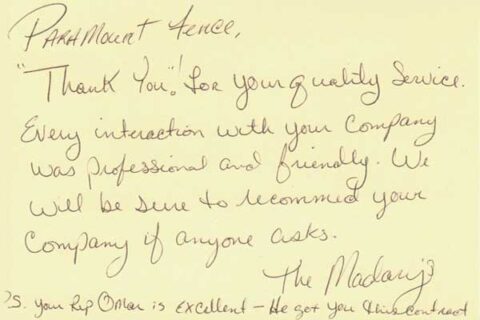 Paramount Fence,
"Thank You"! for your quality service.
Every interaction with your company
was professional and friendly. We
will be sure to recommed your
company if anyone asks.
The
S. Your Rep Omar is Excellent - He got you this contract